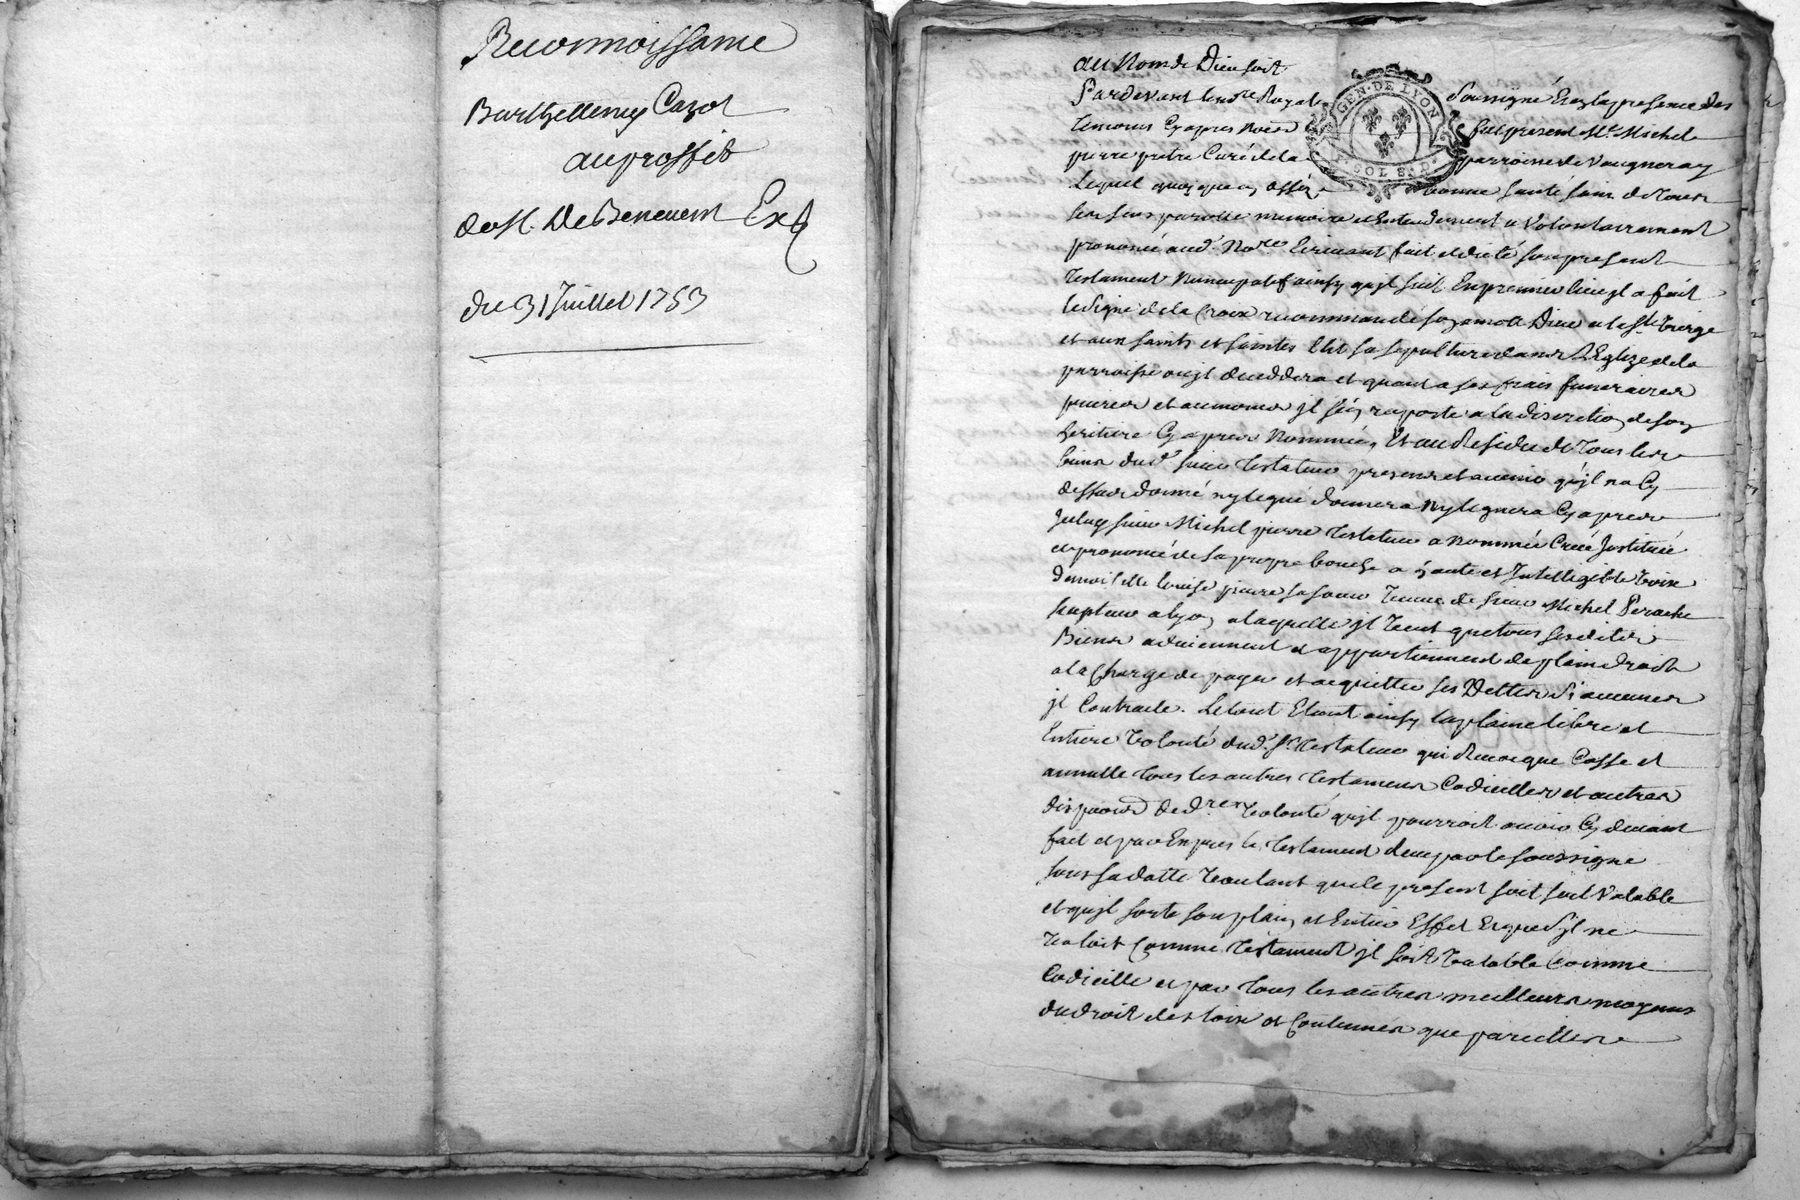 Reconnoissance
Barthellemy Cazot
au proffit
de M. De Benevent Exp
du 31 Juillet 1753
GEN. DE LYON
SOL 8. D.
au Nom de Dieu soit
Pardevant le no.re Royal soussigné Et en la presence des
temoins Cy apres Nom fut present M.e Michel
pierre pretre Curé de la parroisse de Vaugneray
Lequel quoique assis bonne santé sain de tous
ses sens parolle memoire et Entendement a Volontairement
prononcé aud.t No.re Ecrivant fait et dicté son present
testament Nuncupatif ainsy qu'jl suit En premier lieu jl a fait
le signe de la Croix recommandé son ame a Dieu a la S.te Vierge
et aux saints et saintes Elit sa sepulture dans L'Eglize de la
parroisse ou jl deceddera et quant a ses frais funeraires
prieres et aumones jl s'en raporte a la discretion de son
heritiere Cy apres Nommée, Et au Residu de tous les
biens dud.t sieur testateur presens et avenir qu'jl na Cy
dessus donné ny legué donnera Ny leguera Cy apres
Jceluy sieur Michel pierre testateur a Nommée Creée Jnstituée
et prononcé de sa propre bouche a haute et Jntelligible voix
demoiselle louise pierre sa soeur femme de sieur Michel Perache
sculpteur a lyon a laquelle jl veut que tous sesdits
Biens adviennent et appartiennent de plain droit
a la Charge de payer et acquitter ses Dettes si aucunes
jl Contracte. Le tout Etant ainsy la plaine libre et
Entiere volonté dud.t S.r testateur qui Revoque Casse et
annulle tous les autres testamens Codicilles et autres
dispo.ons de d.res volonté qu'jl pourroit avoir Cy devant
fait et par Exprès le testament receu par le soussigné
sous sa datte voulant que le present soit seul Valable
et qu'jl sorte son plain et Entier Effet Et que s'jl ne
valoit Comme testament jl soit valable Comme
Codicille et par tous les autres meilleurs moyens
du droit des loix et Coutumes que pareilles